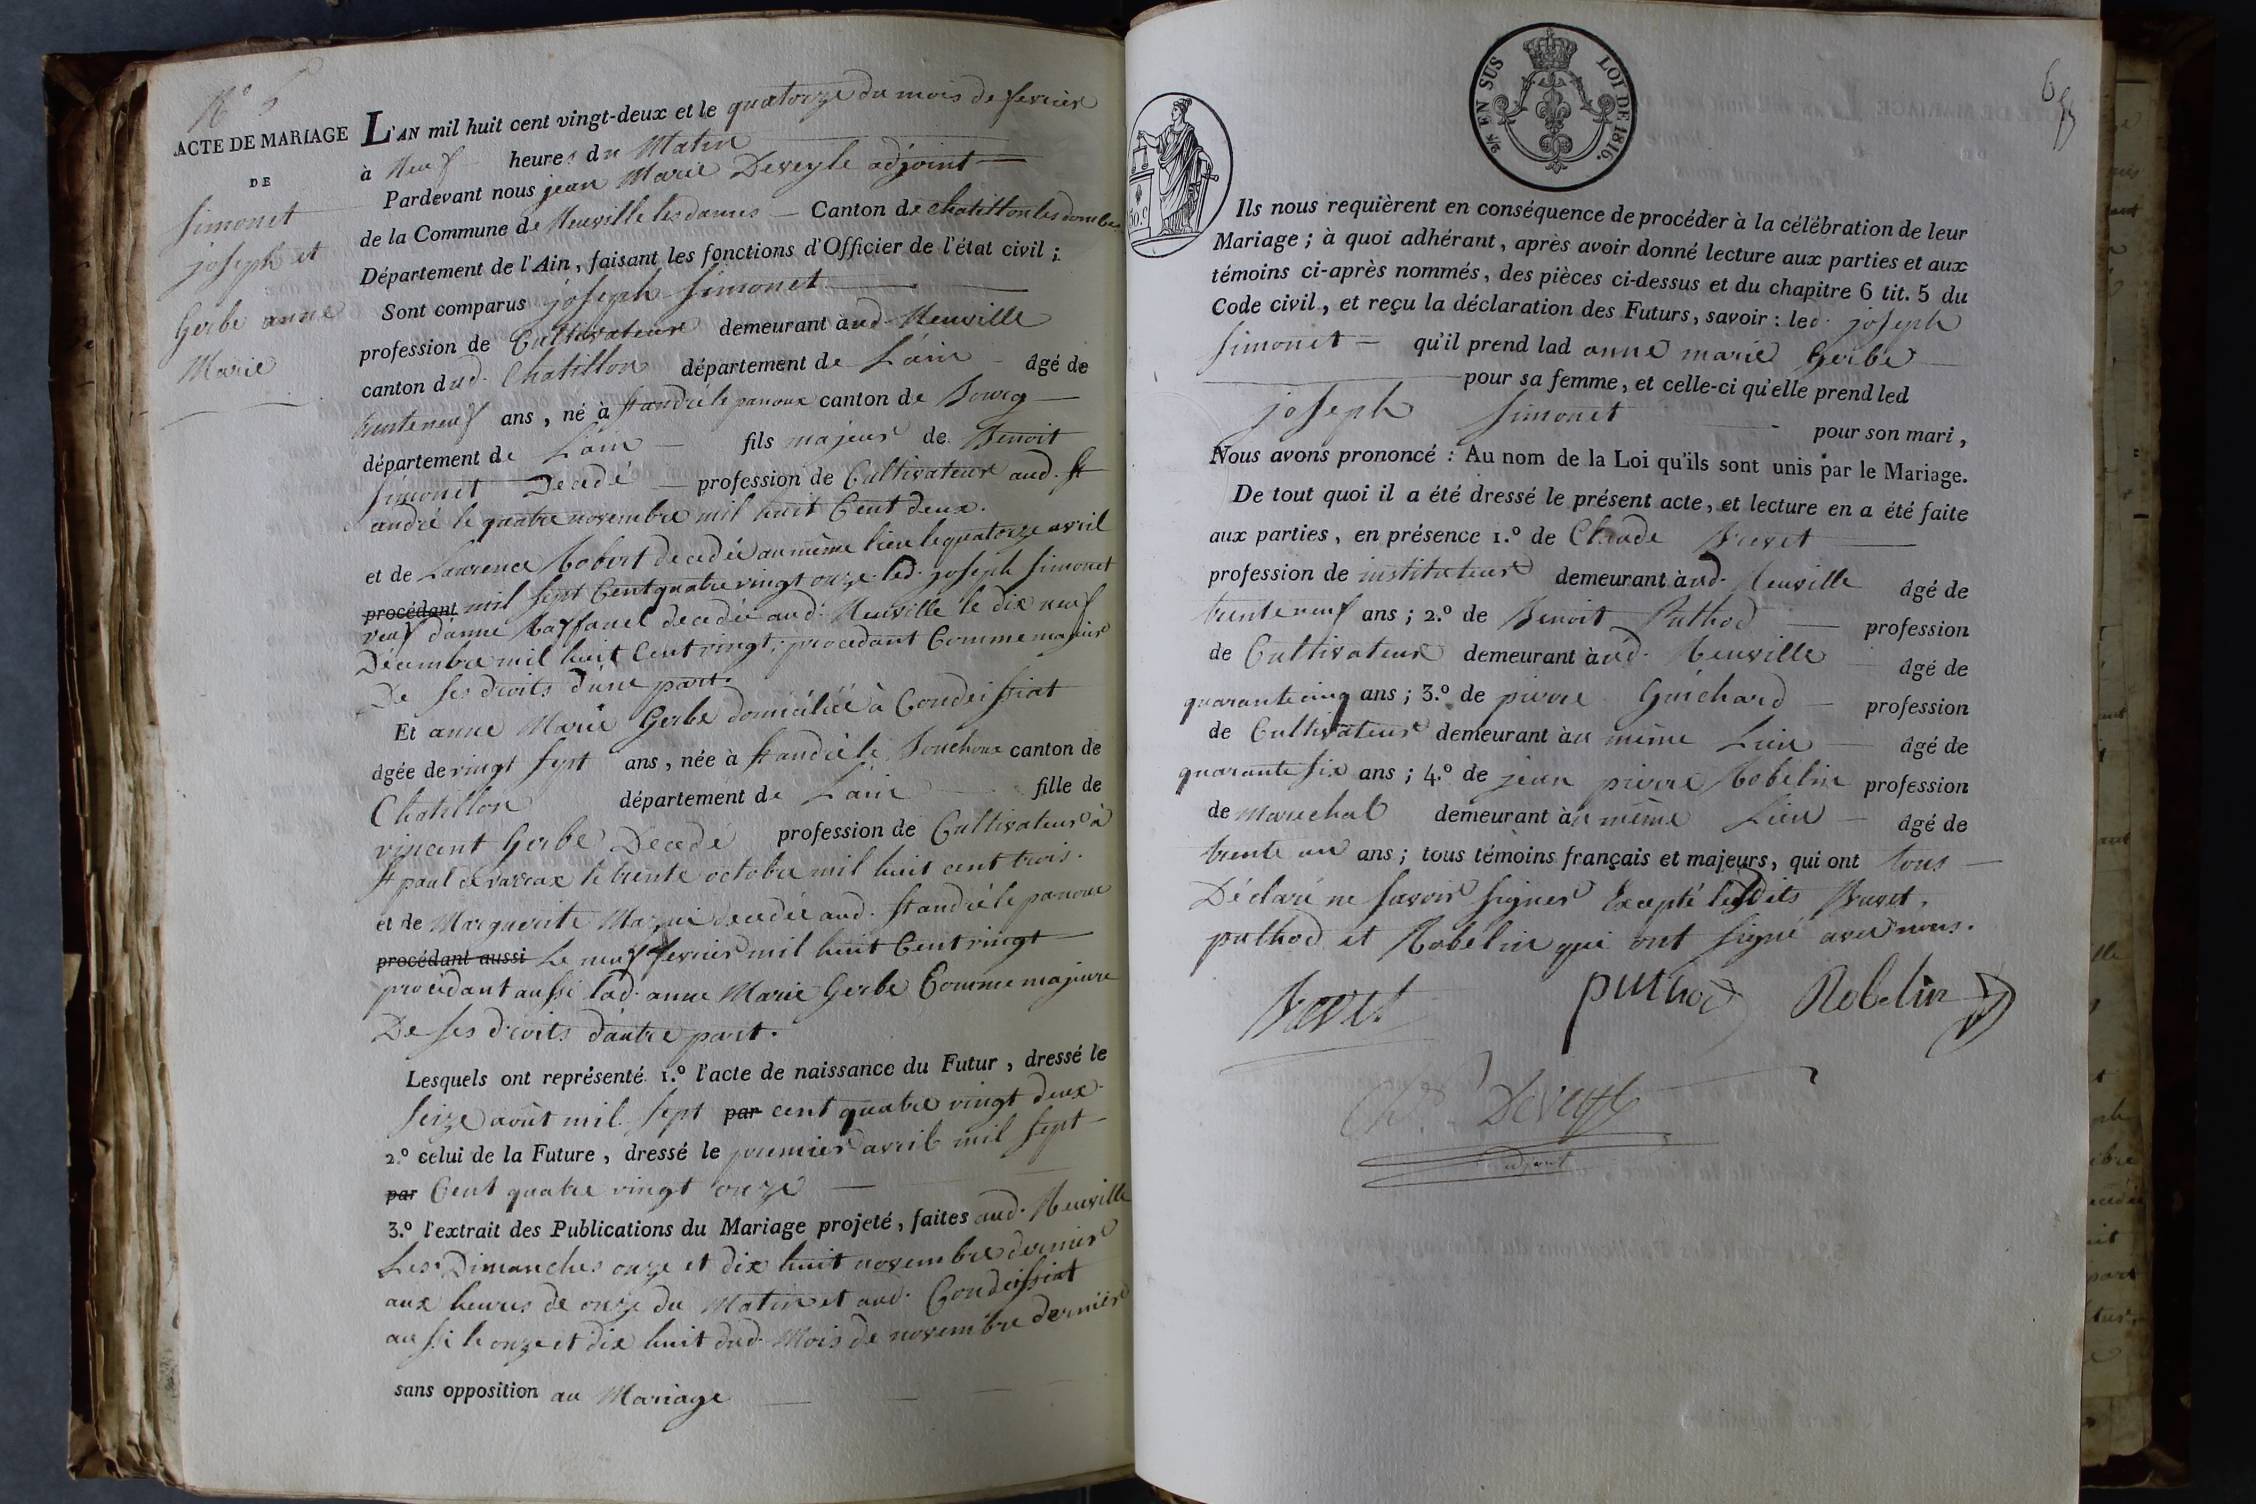 N° 5
ACTE DE MARIAGE
DE
Simonet
joseph et
Gerbe anne
Marie
L'AN mil huit cent vingt-deux et le quatorze du mois de fevrier
à Neuf heures du Matin
Pardevant nous jean Marie Deveyle adjoint
de la Commune de Neuville les dames Canton de chatillon les dombes
Département de l'Ain, faisant les fonctions d'Officier de l'état civil;
Sont comparus joseph Simonet
profession de Cultivateur demeurant aud. Neuville
canton dud. Chatillon département de L'ain âgé de
trente neuf ans, né à St andré le panoux canton de Bourg
département de L'ain fils majeur de Benoit
Simonet Decedé profession de Cultivateur aud. St
andré le quatre novembre mil huit Cent deux.
et de Laurence Robort decedée au même lieu le quatorze avril
procédant mil sept Cent quatre vingt onze. led. joseph Simonet
veuf d'anne decedée aud. Neuville le dix neuf
Décembre mil huit Cent vingt; procedant Comme majeur
De ses droits d'une part.
Et anne Marie Gerbe domiciliée à Condeissiat
âgée de vingt sept ans, née à St andré le Bouchoux canton de
Chatillon département de L'ain fille de
vincent Gerbe Decedé profession de Cultivateur à
St paul de varax le trente octobre mil huit cent trois.
et de Marguerite decedée aud. St andré le panoux
procédant aussi Le neuf fevrier mil huit Cent vingt
procedant aussi lad. anne Marie Gerbe Comme majeure
De ses droits d'autre part.
Lesquels ont représenté 1.° l'acte de naissance du Futur, dressé le
Seize août mil sept par cent quatre vingt deux.
2.° celui de la Future, dressé le premier avril mil sept
par Cent quatre vingt onze
3.° l'extrait des Publications du Mariage projeté, faites aud. Neuville
Les Dimanches onze et dix huit novembre dernier
aux heures de onze du Matin et aud. Condeissiat
aussi le onze et dix huit dud. Mois de novembre dernier
sans opposition au Mariage
EN SUS LOI DE 1816.
50.c
6
Ils nous requièrent en conséquence de procéder à la célébration de leur
Mariage; à quoi adhérant, après avoir donné lecture aux parties et aux
témoins ci-après nommés, des pièces ci-dessus et du chapitre 6 tit. 5 du
Code civil, et reçu la déclaration des Futurs, savoir: led. joseph
Simonet qu'il prend lad anne marie Gerbe
pour sa femme, et celle-ci qu'elle prend led
joseph Simonet pour son mari,
Nous avons prononcé: Au nom de la Loi qu'ils sont unis par le Mariage.
De tout quoi il a été dressé le présent acte, et lecture en a été faite
aux parties, en présence 1.° de Claude Buvet
profession de instituteur demeurant aud. Neuville âgé de
trente neuf ans; 2.° de Benoit Puthod profession
de Cultivateur demeurant aud. Neuville âgé de
quarante cinq ans; 3.° de pierre Guichard profession
de Cultivateur demeurant au même Lieu âgé de
quarante six ans; 4.° de jean pierre Robelin profession
de Marechal demeurant au même Lieu âgé de
trente un ans; tous témoins français et majeurs, qui ont tous
Déclaré ne savoir signer Excepté lesdits Buvet,
puthod et Robelin qui ont signé avec nous.
Buvet puthod Robelin
Deveyle
adjoint